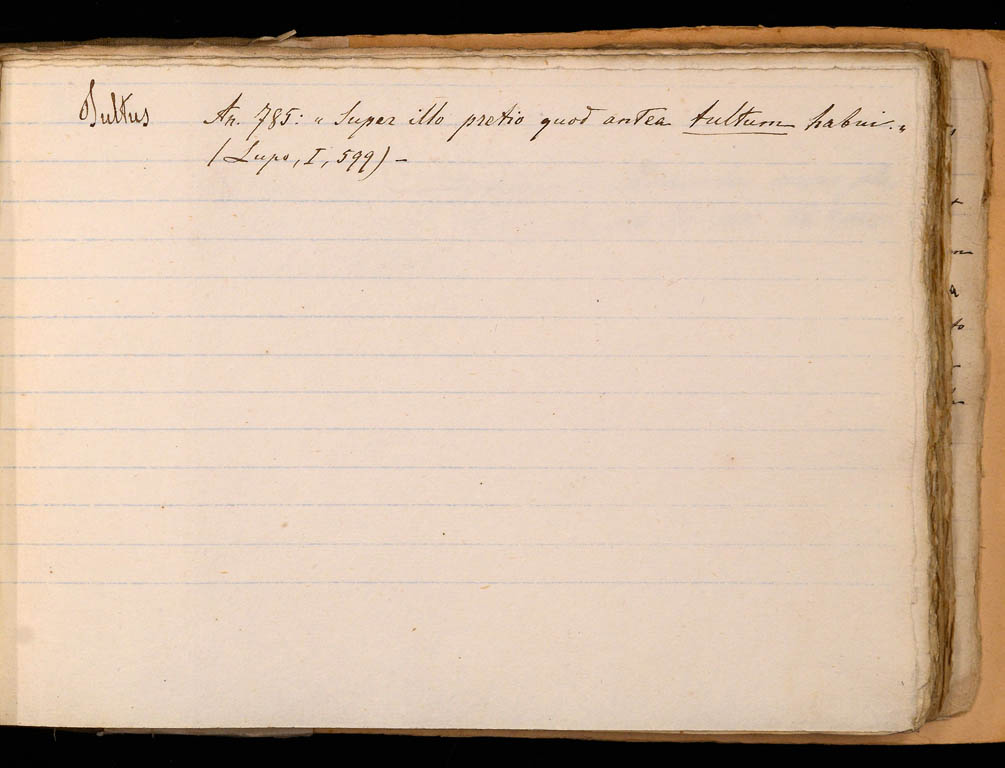 Tultus An. 785: „ Super illo pretio quod antea tultum habui. „
(Lupo, I, 599) –